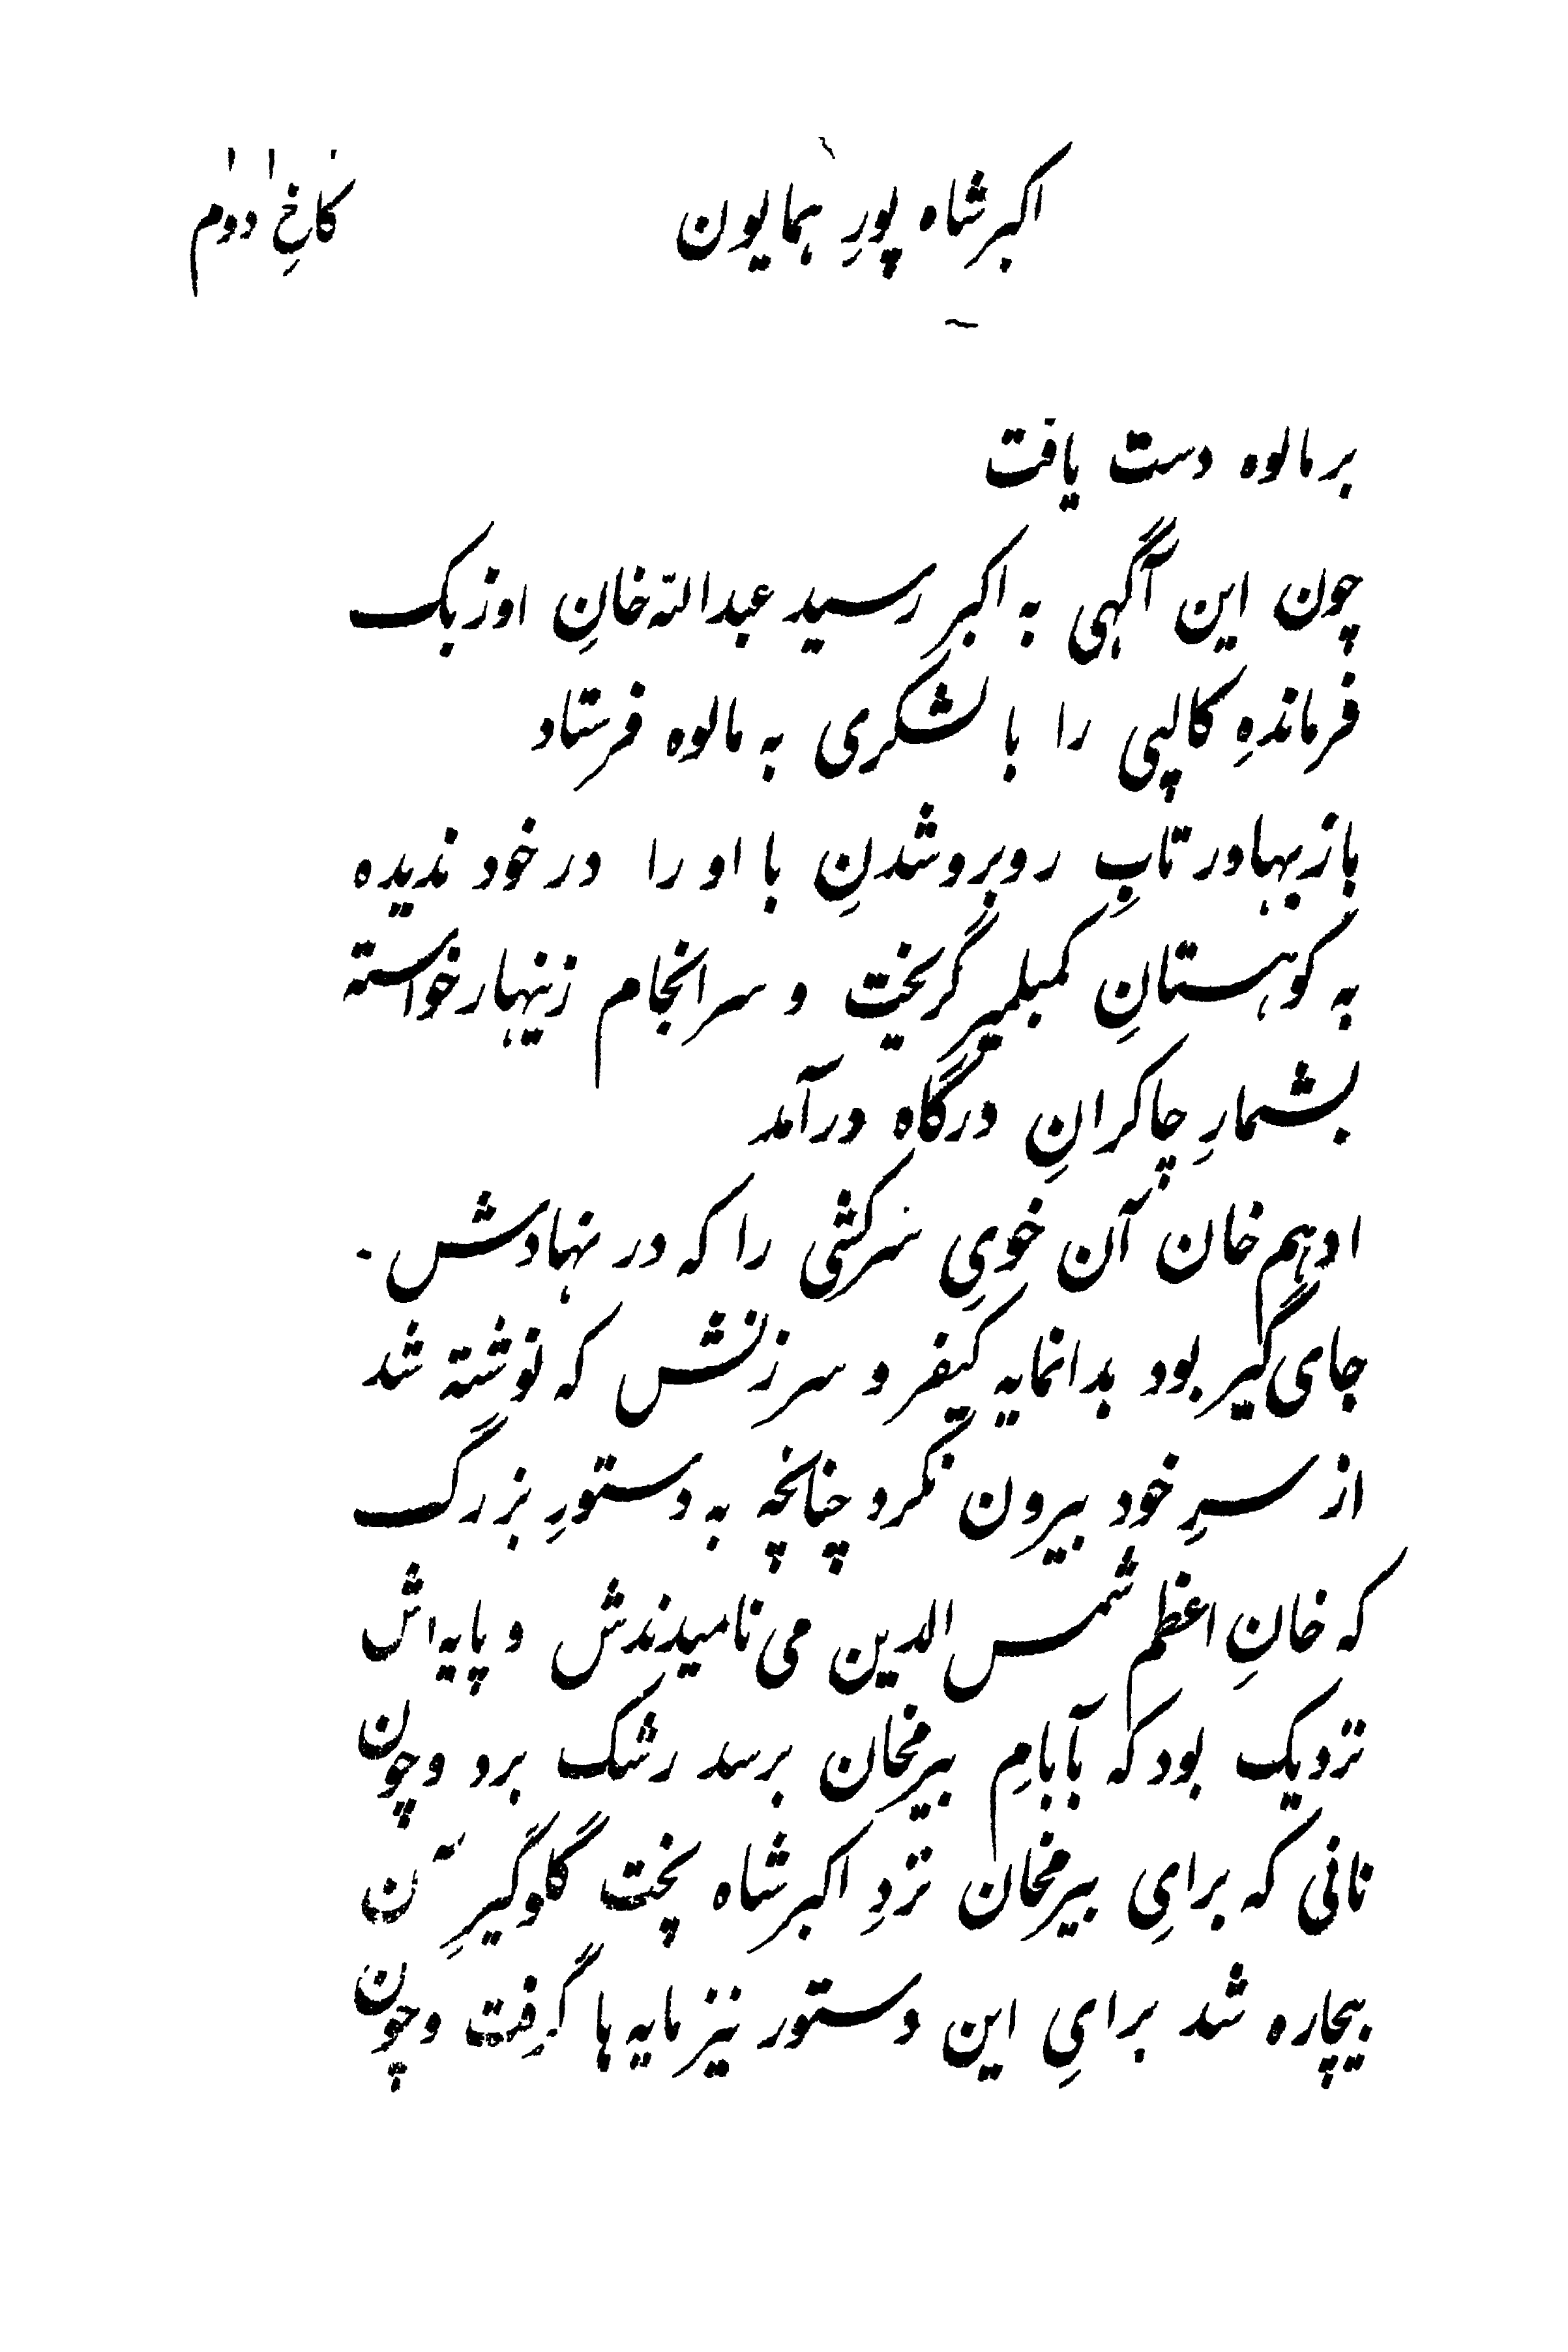 اکبر شاه پورِ همایون
کاخِ دوم
بر مالوه دست یافت
چون این آگهی به اکبر رسید عبدالله خانِ اوزبک
فرماندهِ کالپی را با لشکری به مالوه فرستاد
باز بهادر تابِ روبرو شدنِ با او را در خود ندیده
به کوهستانِ کمبلمیر گریخت و سرانجام زینهار خواسته
بشمارِ چاکرانِ درگاه درآمد
ادهم خان آن خویِ سرکشی را که در نهادش
جای‌گیر بود بدانمایه کیفر و سرزنش که نوشته شد
از سرِ خود بیرون نکرد چنانچه به دستورِ بزرگ
که خانِ اعظم شمس الدین می نامیدندش و پایه‌اش
نزدیک بود که بآبامِ بیرمخان برسد رشک برد و چون
نانی که برایِ بیرمخان نزدِ اکبر شاه پخت گلوگیرِ آن
بیچاره شد برایِ این دستور نیز مایه‌ها گرفت و چون